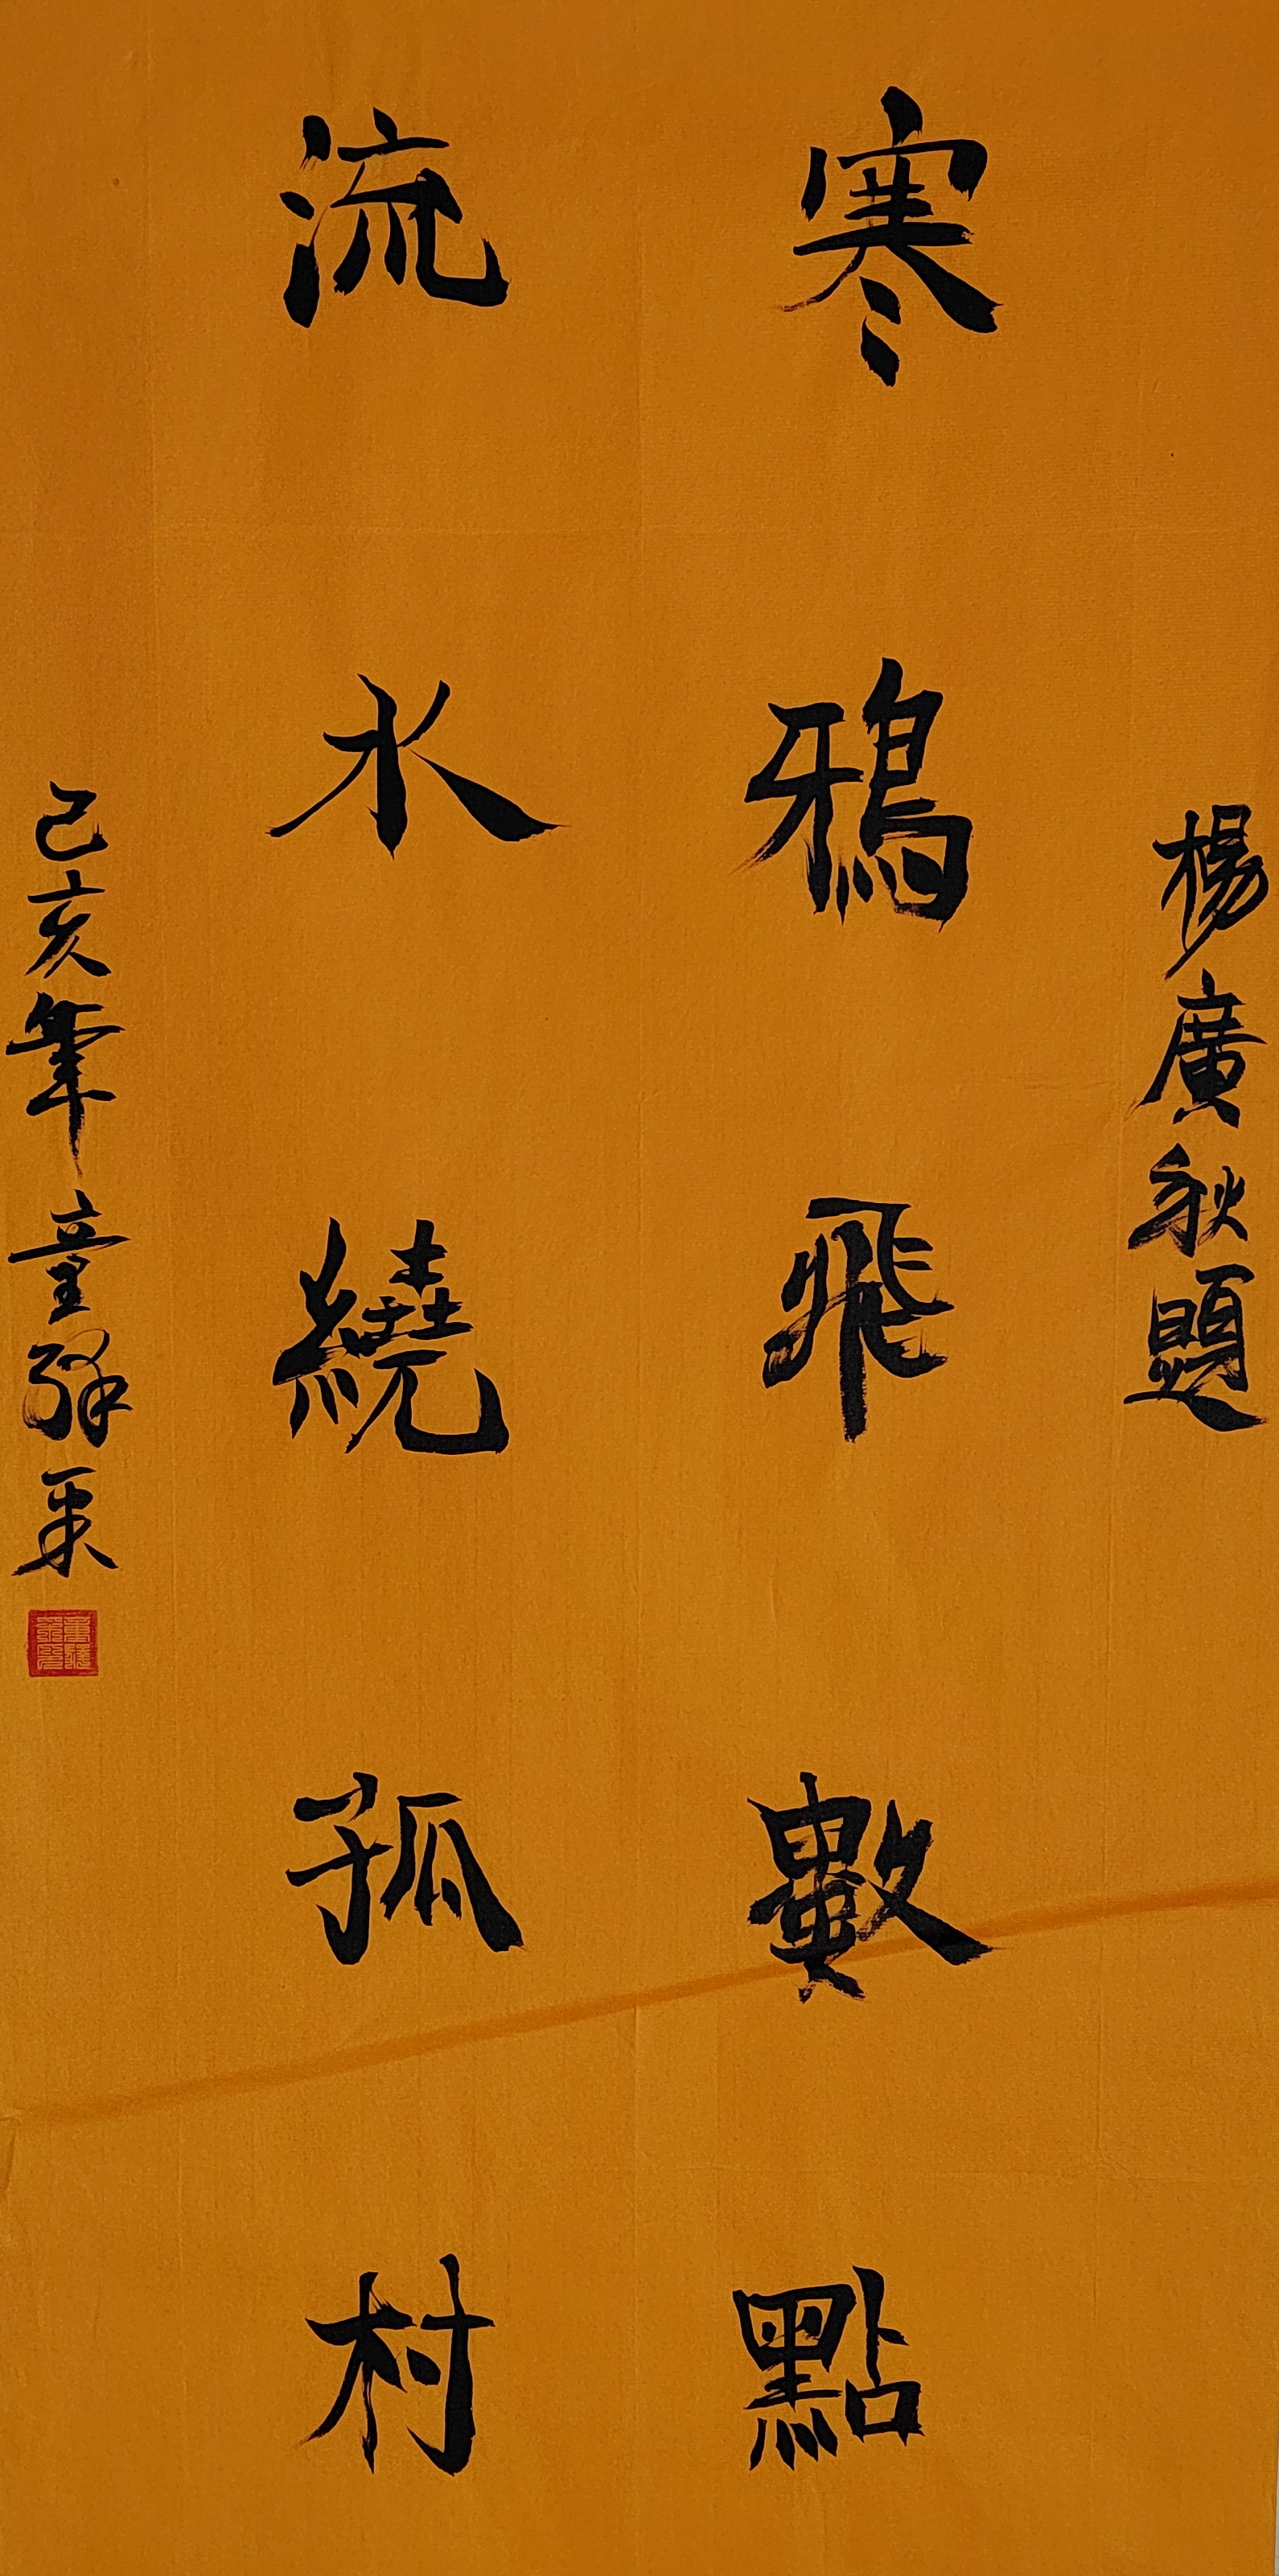 楊廣秋題
寒鴉飛數點
流水繞孤村
己亥年童